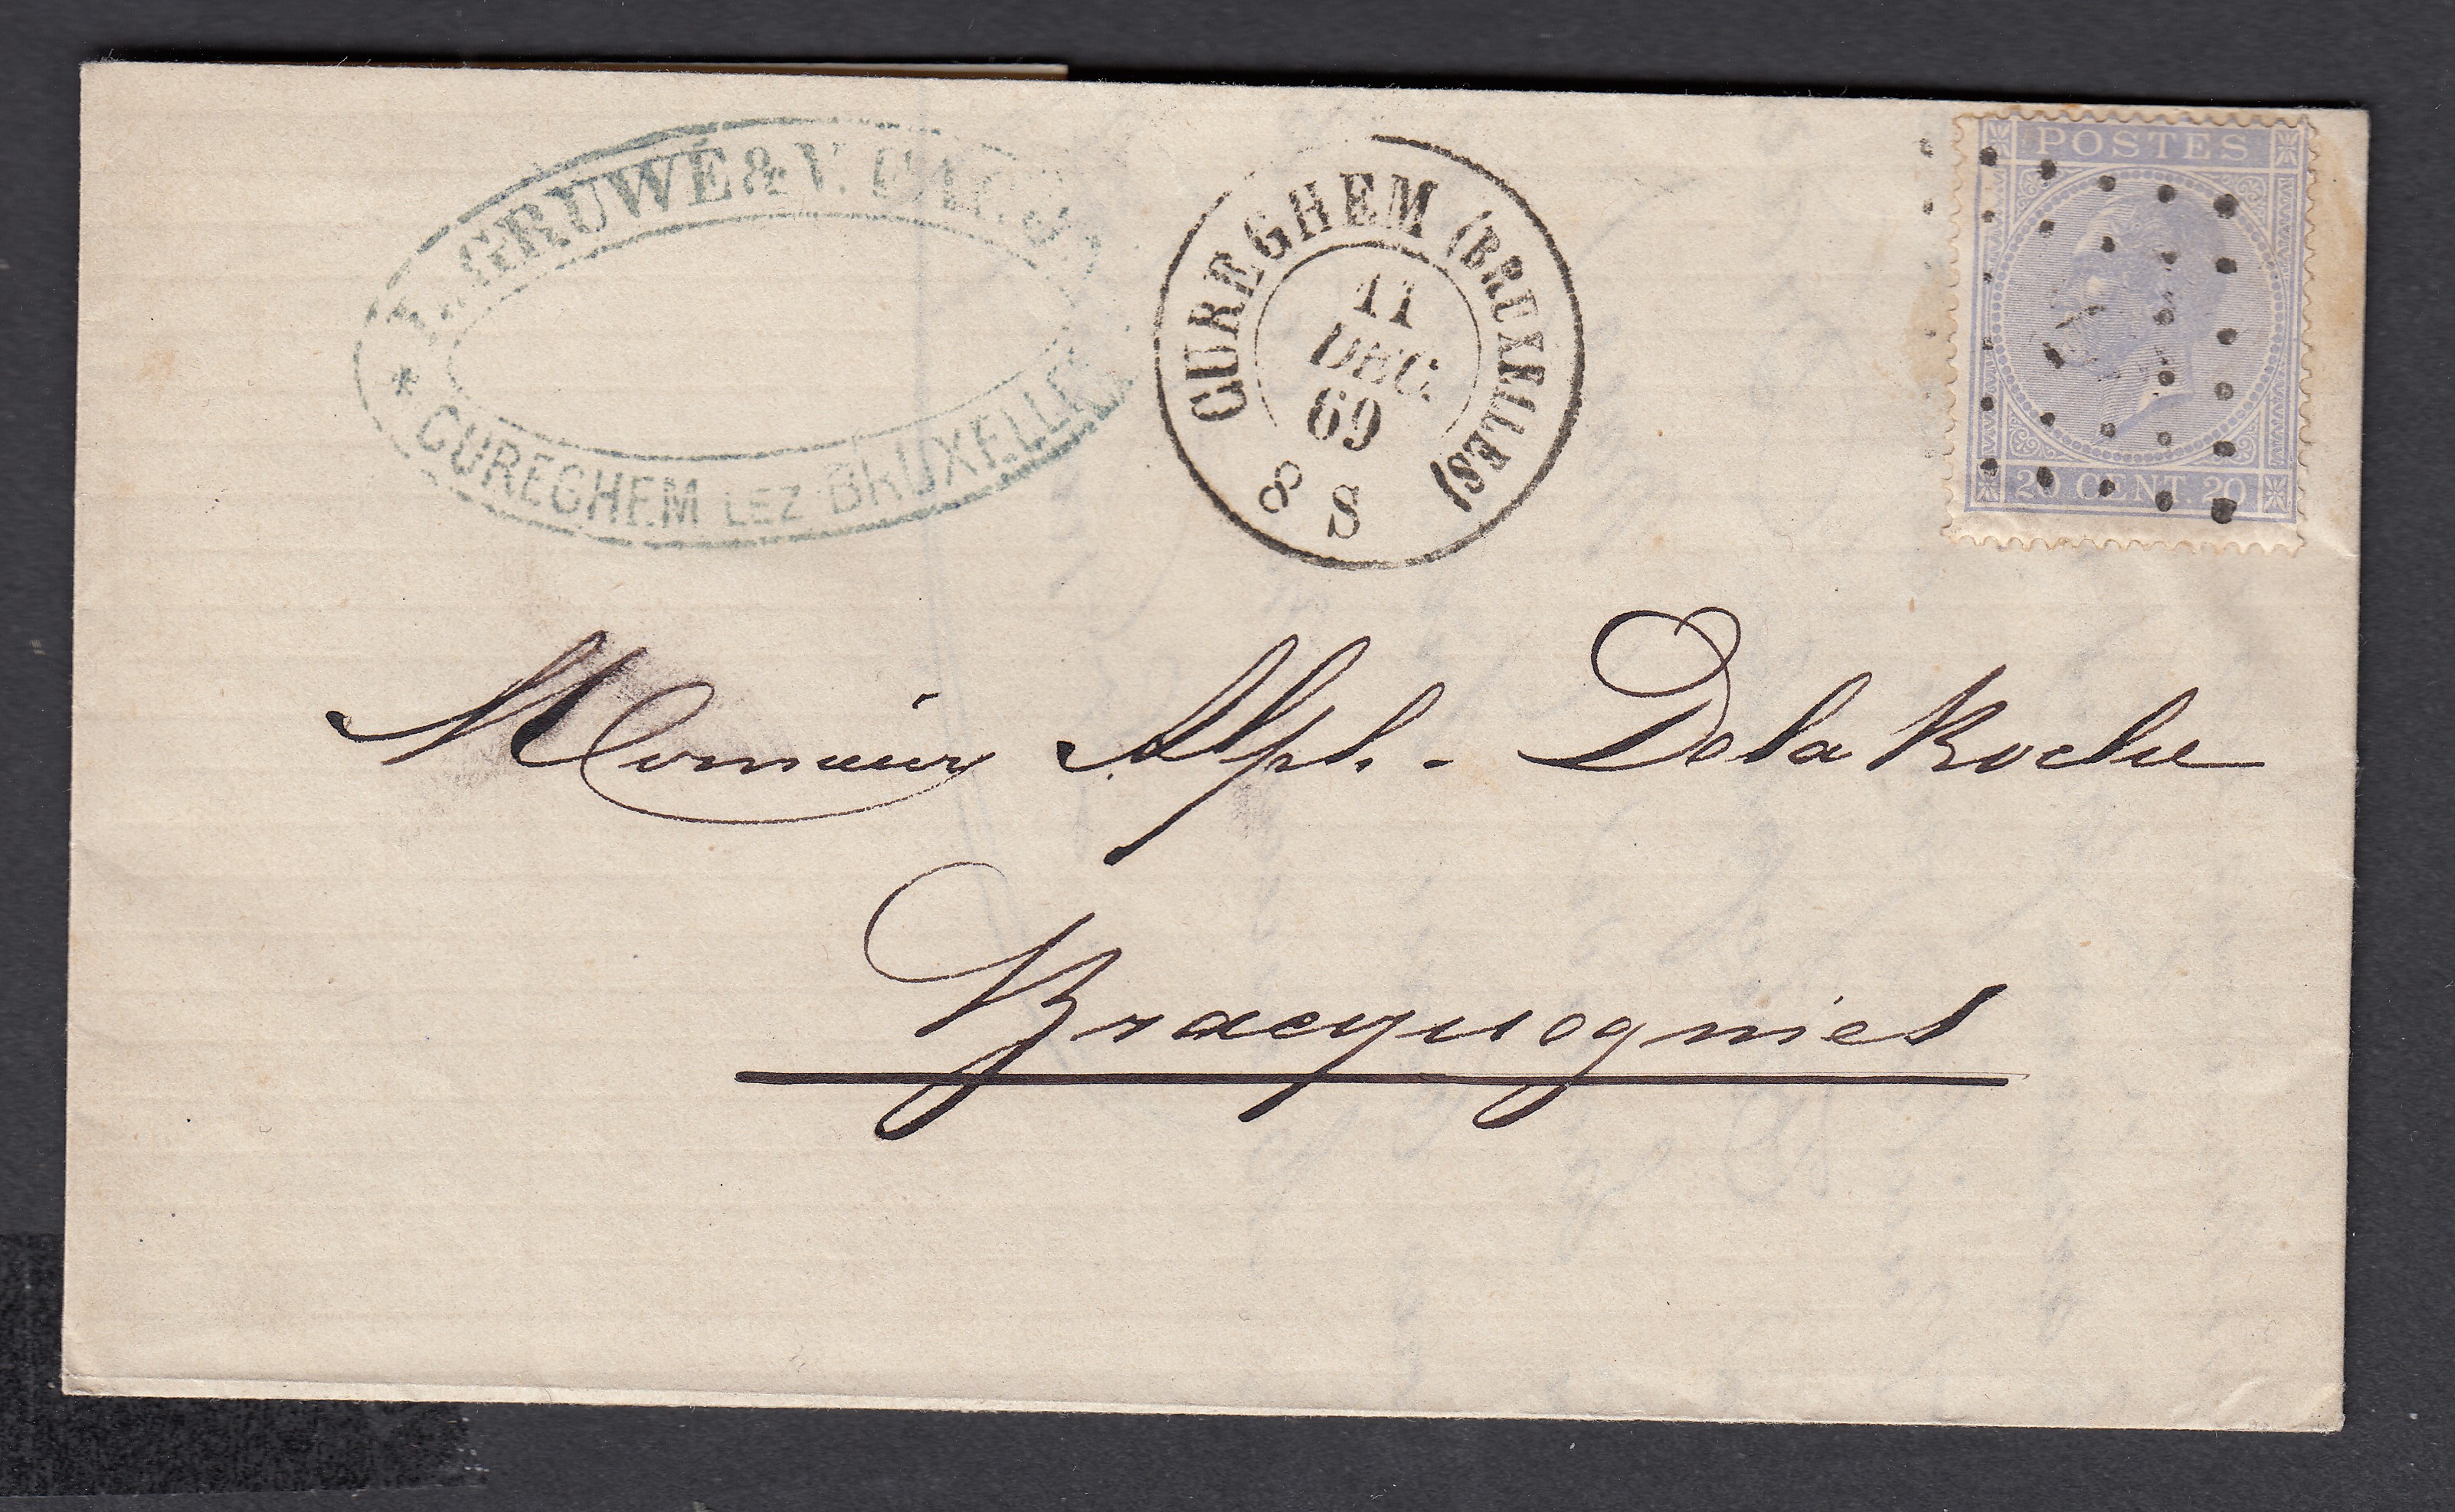 GRUWÉ & V.
* CUREGHEM LEZ BRUXELLES
CUREGHEM (BRUXELLES)
11
DEC.
69
8 S
POSTES
20 CENT. 20
Monsieur Alph. Dela Roche
Bracquegnies